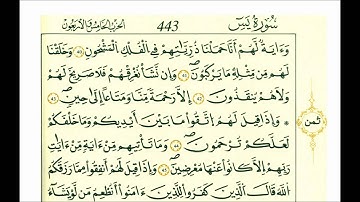 سُورَةُ يَسٓ 443 الحزب الخامس والأربعون
وَءَايَةٌ لَّهُمْ أَنَّا حَمَلْنَا ذُرِّيَّاتِهِمْ فِي الْفُلْكِ الْمَشْحُونِ وَخَلَقْنَا
لَهُم مِّن مِّثْلِهِ مَا يَرْكَبُونَ وَإِن نَّشَأْ نُغْرِقْهُمْ فَلَا صَرِيخَ لَهُمْ
وَلَا هُمْ يُنقَذُونَ إِلَّا رَحْمَةً مِّنَّا وَمَتَاعاً إِلَىٰ حِينٍ
* وَإِذَا قِيلَ لَهُمُ اتَّقُوا مَا بَيْنَ أَيْدِيكُمْ وَمَا خَلْفَكُمْ ثمن
لَعَلَّكُمْ تُرْحَمُونَ وَمَا تَأْتِيهِم مِّنْ ءَايَةٍ مِّنْ ءَايَاتِ
رَبِّهِمْ إِلَّا كَانُوا عَنْهَا مُعْرِضِينَ وَإِذَا قِيلَ لَهُمْ أَنفِقُوا مِمَّا رَزَقَكُمُ
اللَّهُ قَالَ الَّذِينَ كَفَرُوا لِلَّذِينَ ءَامَنُوا أَنُطْعِمُ مَن لَّوْ يَشَاءُ